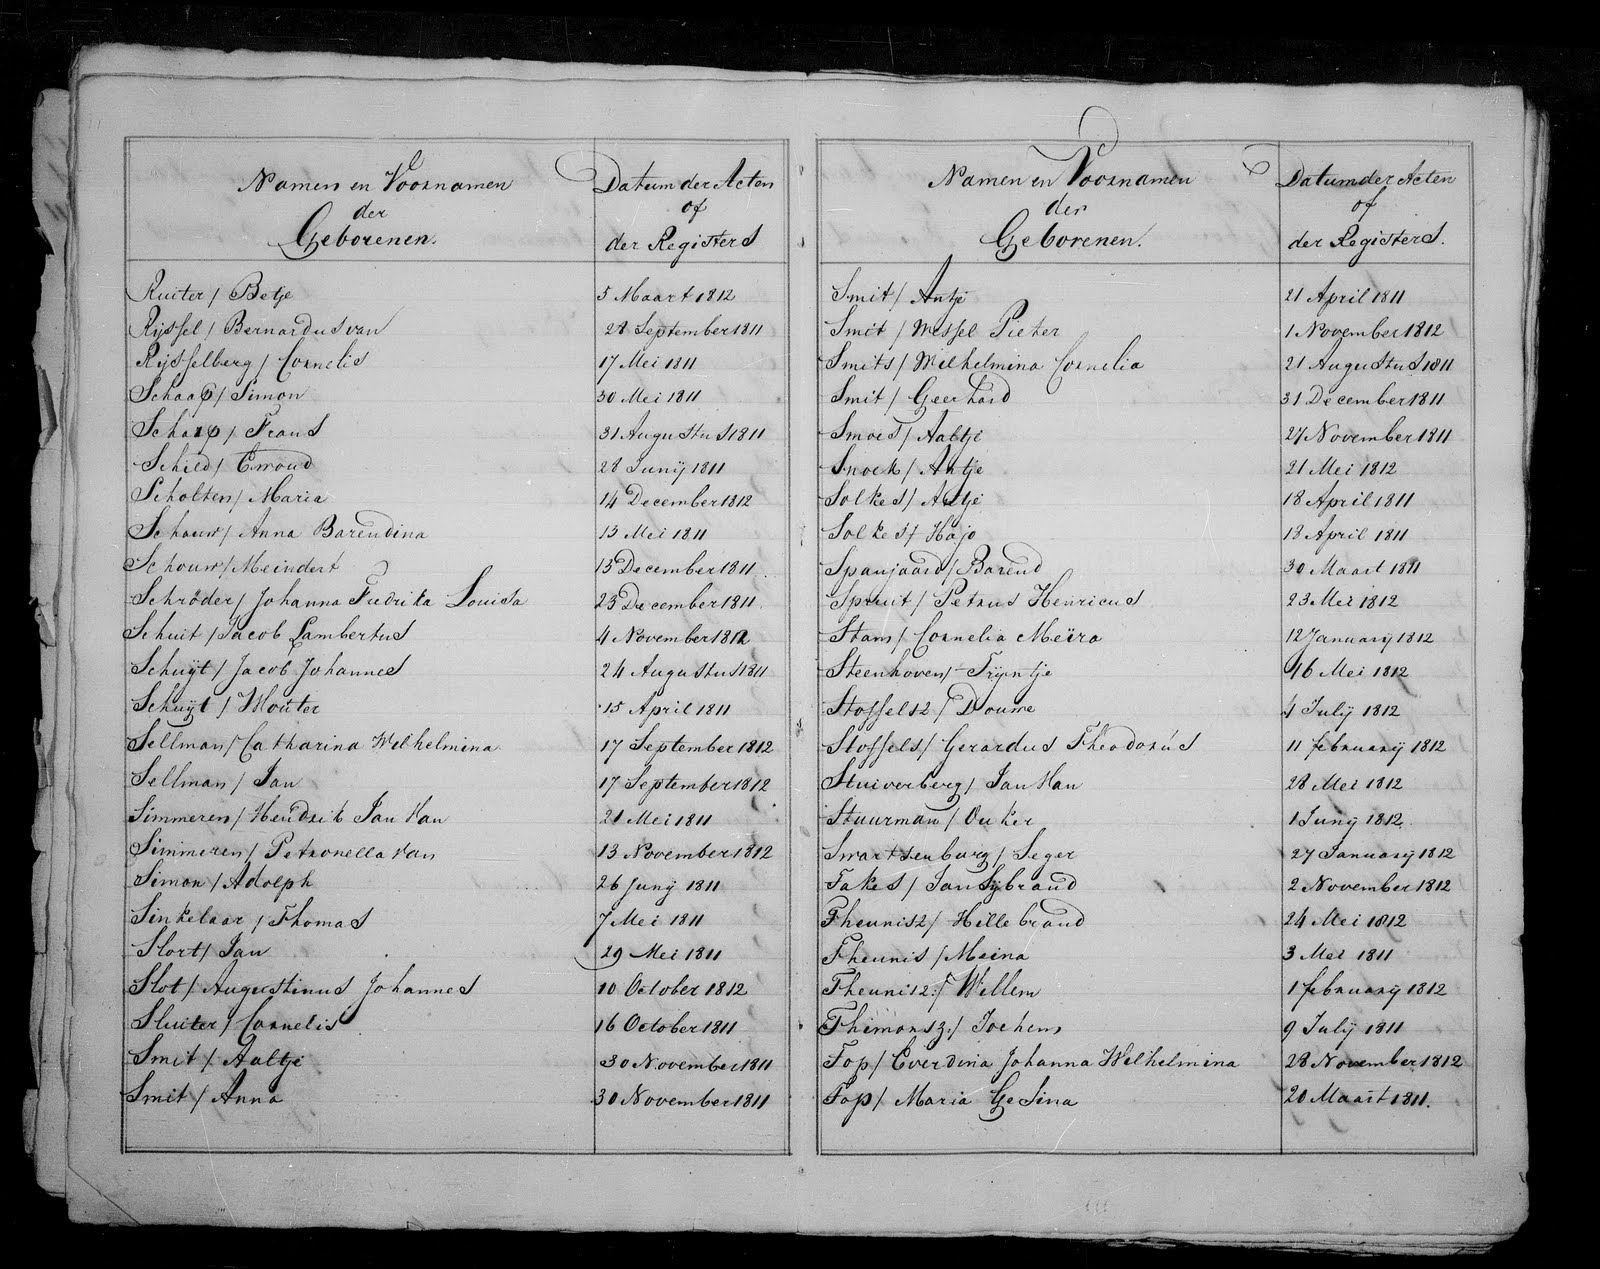 Namen en Voornamen
der
Geborenen.
Datum der Acten
of
der Registers
Ruiter / Betje 5 Maart 1812
Rijssel / Bernardus van 28 September 1811
Rijsselberg / Cornelis 17 Mei 1811
Schaap / Simon 30 Mei 1811
Schaap / Frans 31 Augustus 1811
Schild / Ewoud 28 Junij 1811
Scholten / Maria 14 December 1812
Schouw / Anna Barendina 13 Mei 1811
Schouw / Meindert 15 December 1811
Schröder / Johanna Fredrika Louisa 23 December 1811
Schuit / Jacob Lambertus 4 November 1812
Schuijt / Jacob Johannes 24 Augustus 1811
Schuijt / Wouter 15 April 1811
Sellman / Catharina Wilhelmina 17 September 1812
Sellman / Jan 17 September 1812
Simmeren / Hendrik Jan Van 21 Mei 1811
Simmeren / Petronella Van 13 November 1812
Simon / Adolph 26 Junij 1811
Sinkelaar / Thomas 7 Mei 1811
Slort / Jan 29 Mei 1811
Slot / Augustinus Johannes 10 October 1812
Sluiter / Cornelis 16 October 1811
Smit / Aaltje 30 November 1811
Smit / Anna 30 November 1811
Namen en Voornamen
der
Geborenen.
Datum der Acten
of
der Registers.
Smit / Antje 21 April 1811
Smit / Wessel Pieter 1 November 1812
Smits / Wilhelmina Cornelia 21 Augustus 1811
Smit / Geerhard 31 December 1811
Smoes / Aaltje 27 November 1811
Snoek / Antje 21 Mei 1812
Solkes / Antje 18 April 1811
Solkes / Hajo 18 April 1811
Spanjaard / Barend 30 Maart 1811
Spruit / Petrus Henricus 23 Mei 1812
Stam / Cornelia Meïra 12 January 1812
Steenhoven / Trijntje 16 Mei 1812
Stoffelsz / Douwe 4 Julij 1812
Stoffels / Gerardus Theodorus 11 februarij 1812
Stuiverberg / Jan Van 28 Mei 1812
Stuurman / Ouker 1 Junij 1812
Swartsenburg / Seger 27 Januarij 1812
Takes / Jan Sijbrand 2 November 1812
Theunisz / Hillebrand 24 Mei 1812
Theunis / Meina 3 Mei 1811
Theunisz: / Willem 1 februarij 1812
Thimonsz. / Jochem 9 Julij 1811
Top / Everdina Johanna Wilhelmina 28 November 1812
Top / Maria Gesina 20 Maart 1811.